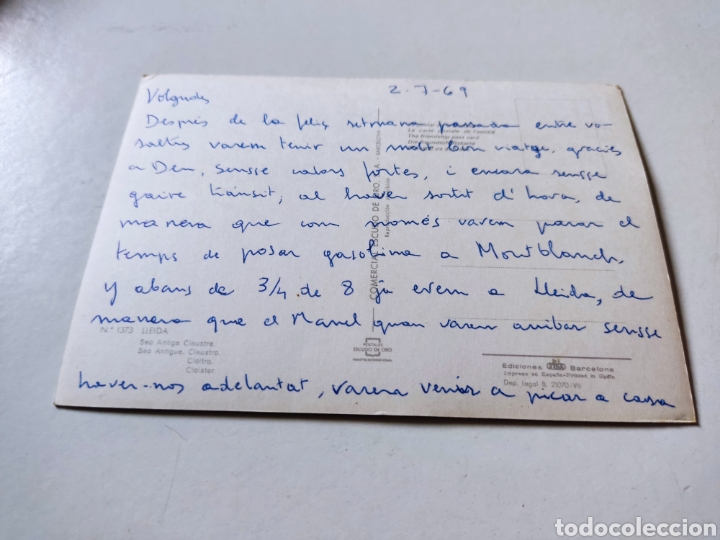 2-7-69
Volgudes
Després de la feliç setmana passada entre vo-
saltes varem tenir un molt bon viatge, gràcies
a Deu, sensse calors fortes, i encara sensse
gaire trànsit, al haver sortit d'hora, de
manera que com només varem parar el
temps de posar gasolina a Montblanch,
y abans de 3/4 de 8 ja erem a Lleida, de
manera que el Manel quan varem arribar sensse
haver-nos adelantat, varem venir a picar a casa
La carte postale de l'amitié
The friendship post card
COMERCIAL ESCUDO DE ORO, S.A.
N.º 1373 LLEIDA
Seo Antiga Claustre.
Seo Antigua. Claustro.
Cloître.
Cloister.
POSTALES
ESCUDO DE ORO
Ediciones Barcelona
Impreso en España-Printed in Spain
Dep. Legal B. 21070-VII
todocoleccion